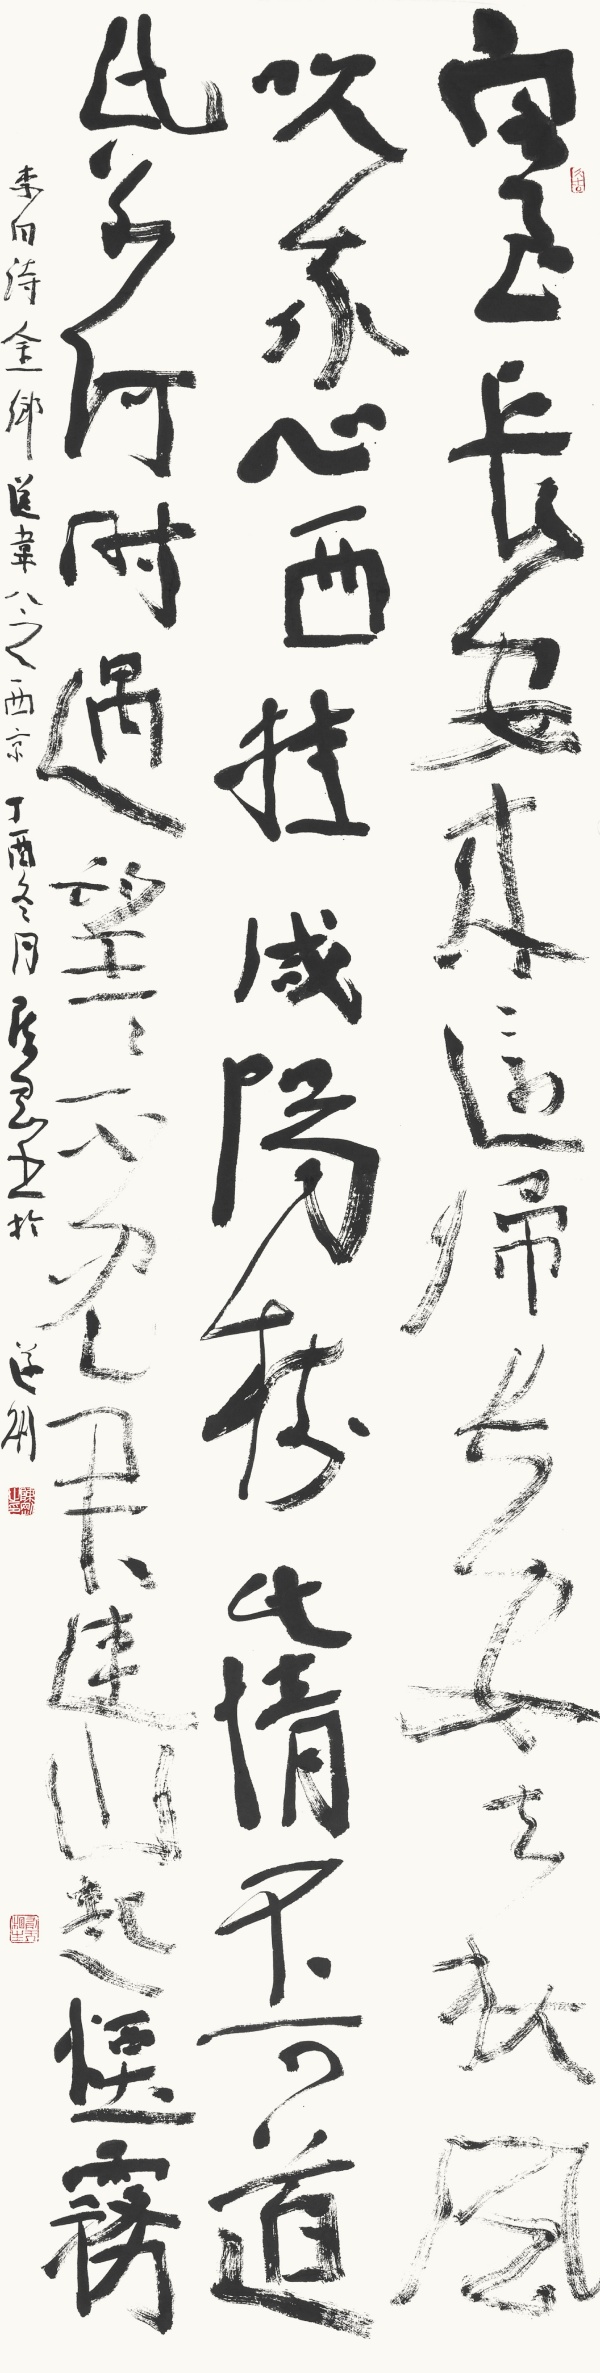 客自長安来還歸長安去狂風
吹我心西挂咸陽樹此情不可道
此别何时遇望〻不見君連山起煙霧
李白诗金鄉送韋八之西京 丁酉冬月 書於